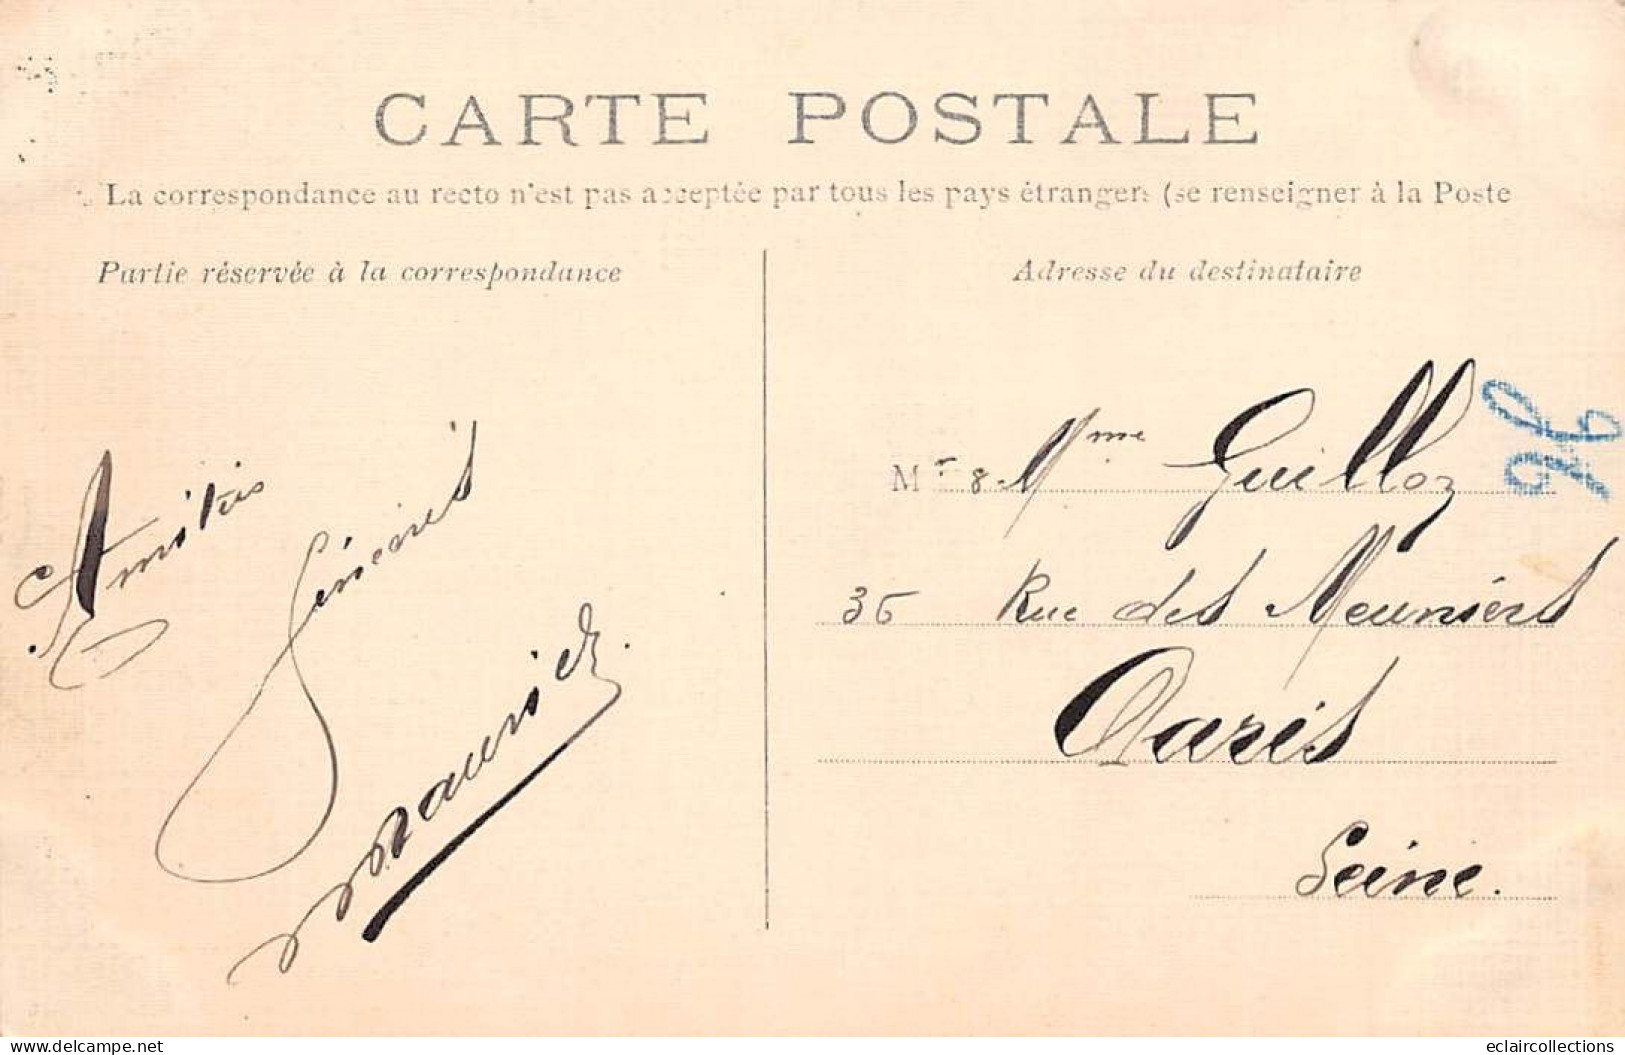 CARTE POSTALE
La correspondance au recto n'est pas acceptée par tous les pays étrangers (se renseigner à la Poste
Partie réservée à la correspondance
Adresse du destinataire
Amitiés
Sincères
Maurice
Mr & Mme Guilloz
35 Rue des Meuniers
Paris
Seine.
delcampe.net
eclaircollections